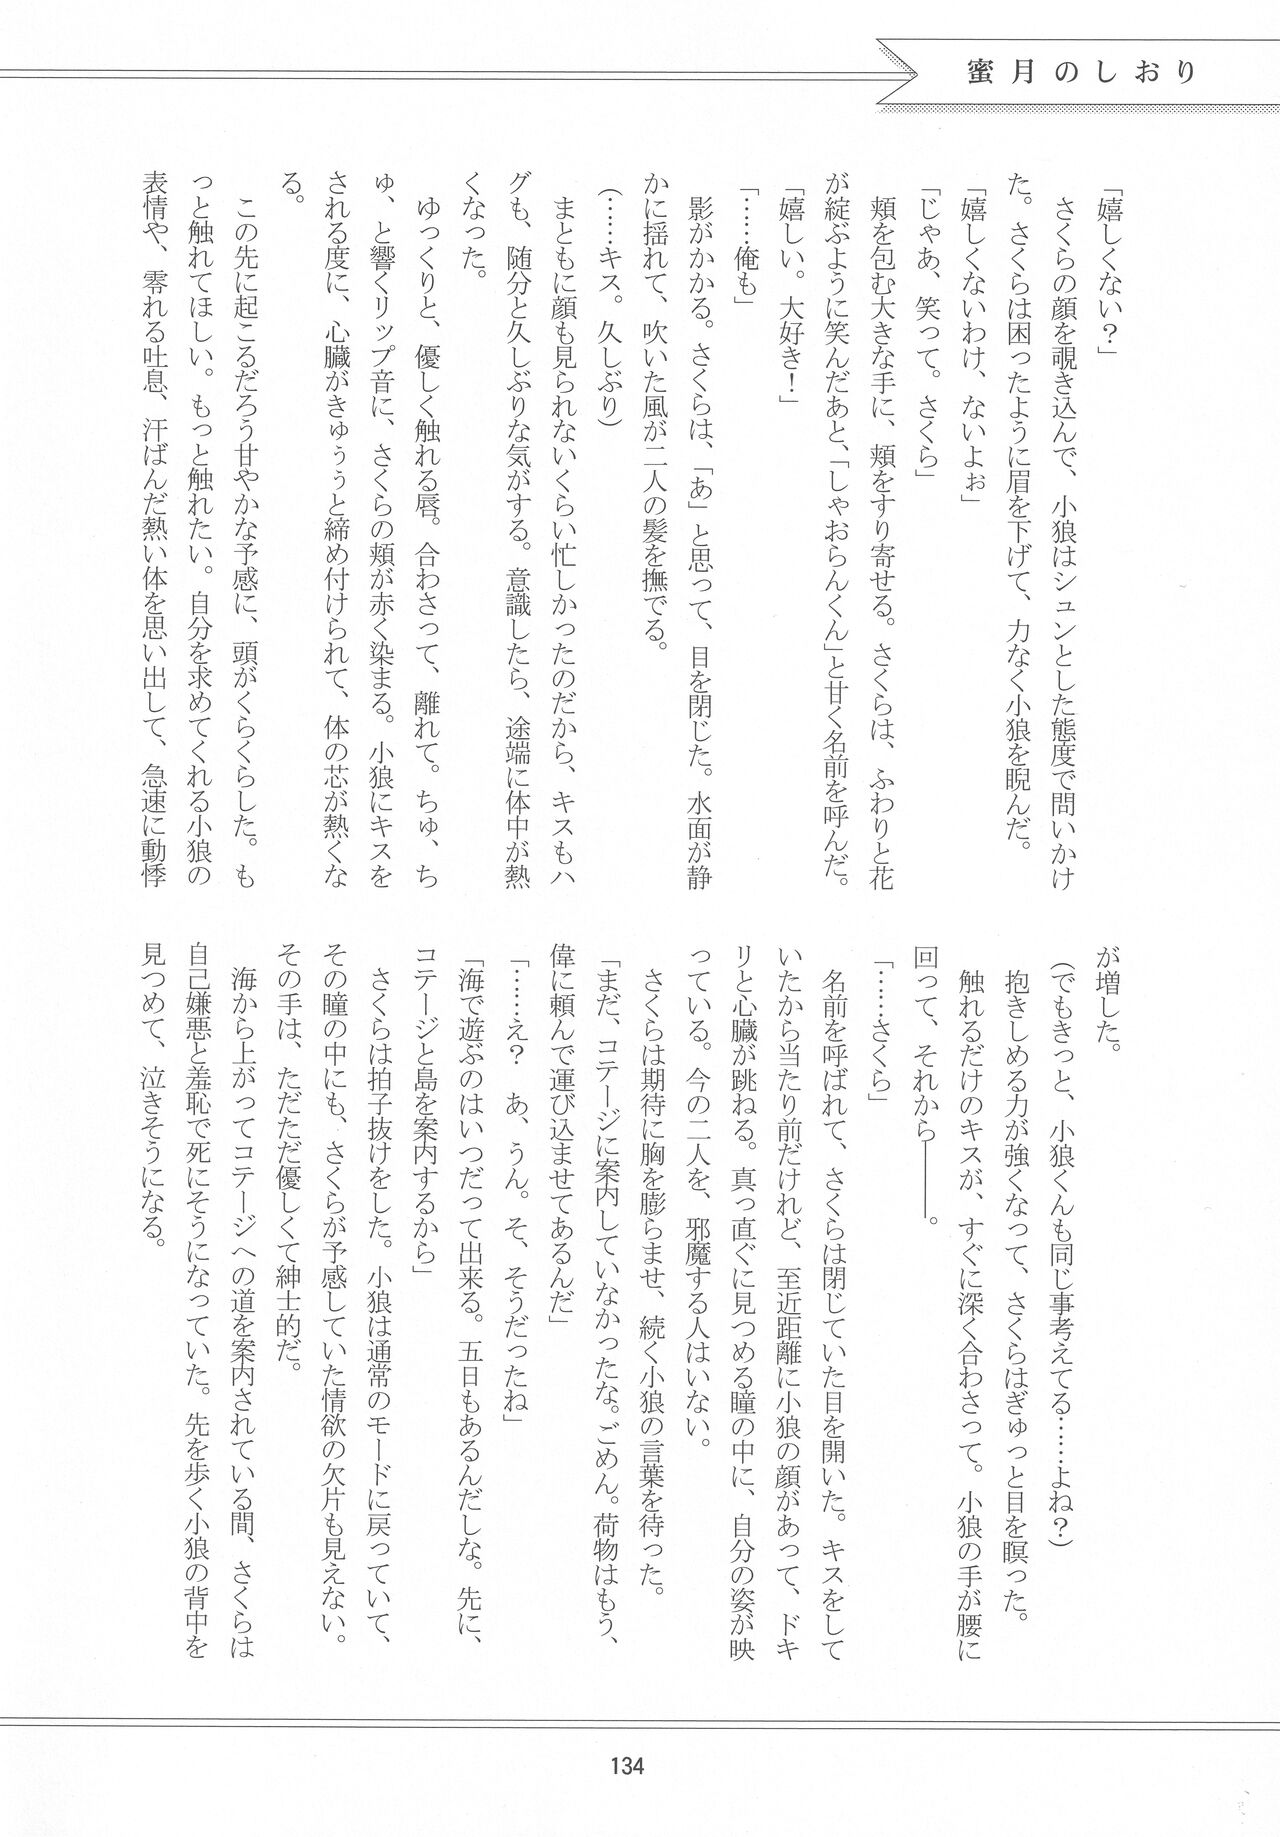 蜜月のしおり
「嬉しくない？」
　さくらの顔を覗き込んで、小狼はシュンとした態度で問いかけ
た。さくらは困ったように眉を下げて、力なく小狼を睨んだ。
「嬉しくないわけ、ないよぉ」
「じゃあ、笑って。さくら」
　頬を包む大きな手に、頬をすり寄せる。さくらは、ふわりと花
が綻ぶように笑んだあと、「しゃおらんくん」と甘く名前を呼んだ。
「嬉しい。大好き！」
「……俺も」
　影がかかる。さくらは、「あ」と思って、目を閉じた。水面が静
かに揺れて、吹いた風が二人の髪を撫でる。
（……キス。久しぶり）
　まともに顔も見られないくらい忙しかったのだから、キスもハ
グも、随分と久しぶりな気がする。意識したら、途端に体中が熱
くなった。
　ゆっくりと、優しく触れる唇。合わさって、離れて。ちゅ、ち
ゅ、と響くリップ音に、さくらの頬が赤く染まる。小狼にキスを
される度に、心臓がきゅぅぅと締め付けられて、体の芯が熱くな
る。
　この先に起こるだろう甘やかな予感に、頭がくらくらした。も
っと触れてほしい。もっと触れたい。自分を求めてくれる小狼の
表情や、零れる吐息、汗ばんだ熱い体を思い出して、急速に動悸
が増した。
（でもきっと、小狼くんも同じ事考えてる……よね？）
　抱きしめる力が強くなって、さくらはぎゅっと目を瞑った。
　触れるだけのキスが、すぐに深く合わさって。小狼の手が腰に
回って、それから――――。
「……さくら」
　名前を呼ばれて、さくらは閉じていた目を開いた。キスをして
いたから当たり前だけれど、至近距離に小狼の顔があって、ドキ
リと心臓が跳ねる。真っ直ぐに見つめる瞳の中に、自分の姿が映
っている。今の二人を、邪魔する人はいない。
　さくらは期待に胸を膨らませ、続く小狼の言葉を待った。
「まだ、コテージに案内していなかったな。ごめん。荷物はもう、
偉に頼んで運び込ませてあるんだ」
「……え？　あ、うん。そ、そうだったね」
「海で遊ぶのはいつだって出来る。五日もあるんだしな。先に、
コテージと島を案内するから」
　さくらは拍子抜けをした。小狼は通常のモードに戻っていて、
その瞳の中にも、さくらが予感していた情欲の欠片も見えない。
その手は、ただただ優しくて紳士的だ。
　海から上がってコテージへの道を案内されている間、さくらは
自己嫌悪と羞恥で死にそうになっていた。先を歩く小狼の背中を
見つめて、泣きそうになる。
134